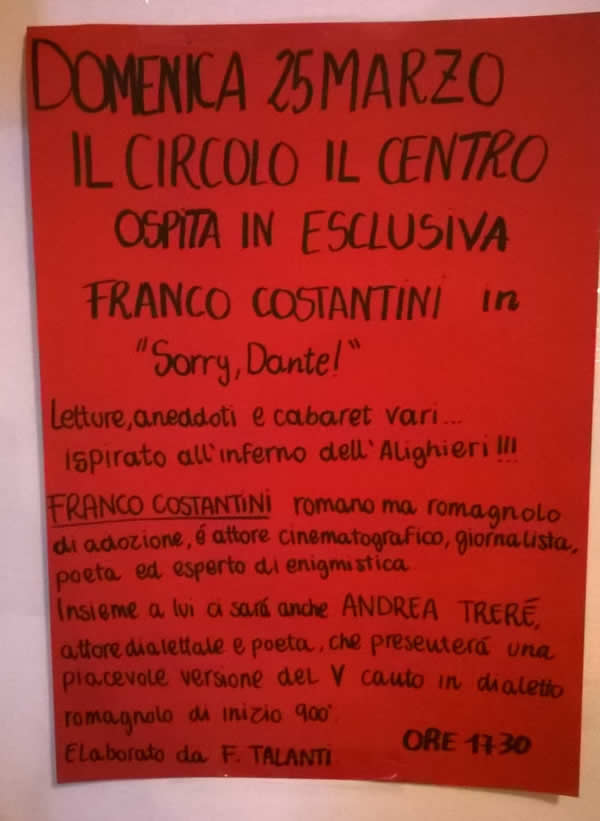 DOMENICA 25 MARZO
IL CIRCOLO IL CENTRO
OSPITA IN ESCLUSIVA
FRANCO COSTANTINI in
"Sorry, Dante!"
Letture, aneddoti e cabaret vari...
ispirato all'inferno dell'Alighieri!!!
FRANCO COSTANTINI romano ma romagnolo
di adozione, é attore cinematografico, giornalista,
poeta ed esperto di enigmistica
Insieme a lui ci sará anche ANDREA TRERÉ,
attore dialettale e poeta, che presenterá una
piacevole versione del V canto in dialetto
romagnolo di inizio 900'
Elaborato da F. TALANTI
ORE 17 30